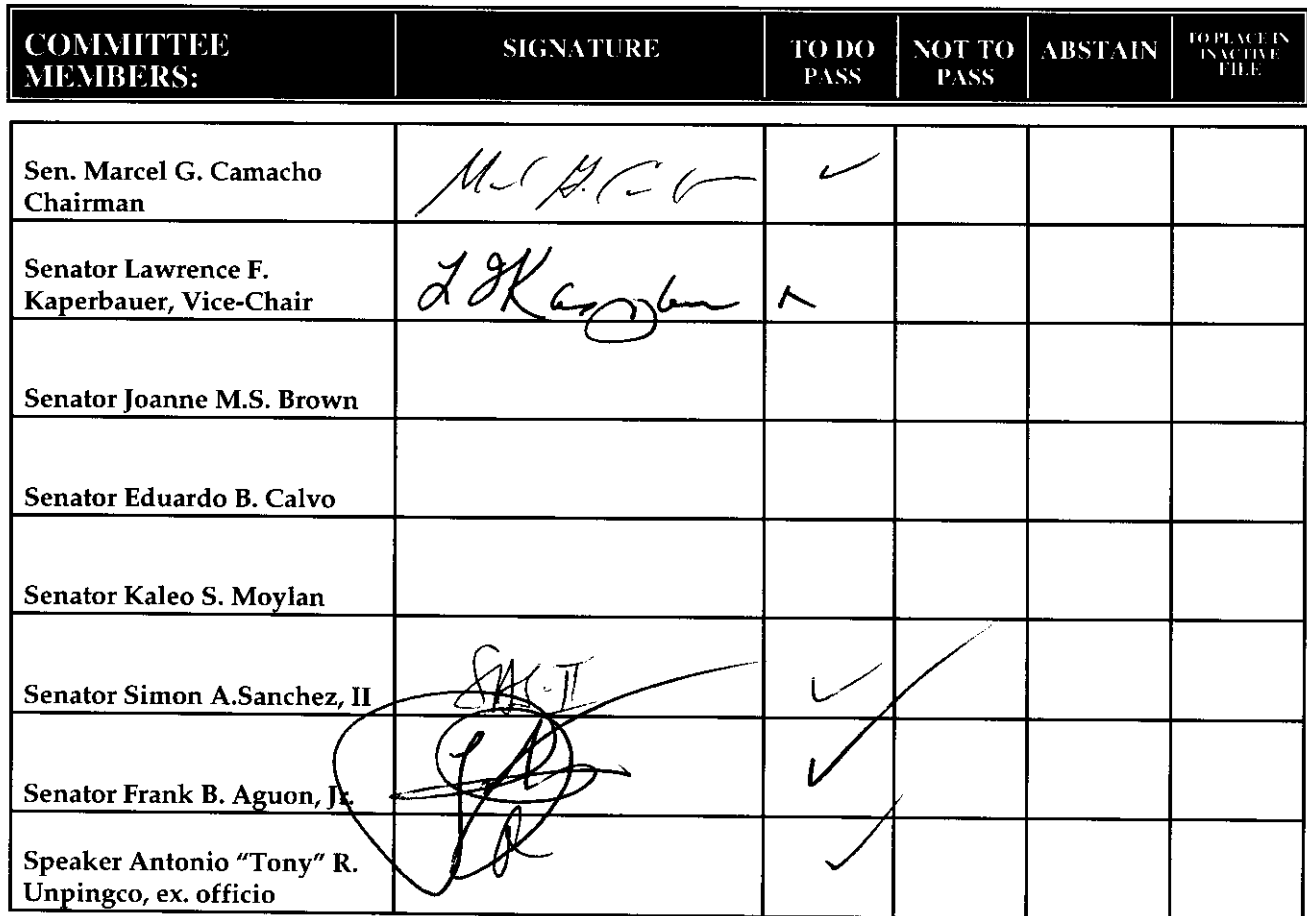 COMMITTEE MEMBERS: SIGNATURE TO DO PASS NOT TO PASS ABSTAIN TO PLACE IN INACTIVE FILE
Sen. Marcel G. Camacho
Chairman
✓
Senator Lawrence F.
Kaperbauer, Vice-Chair
Senator Joanne M.S. Brown
Senator Eduardo B. Calvo
Senator Kaleo S. Moylan
Senator Simon A.Sanchez, II
✓
Senator Frank B. Aguon, Jr.
✓
Speaker Antonio "Tony" R.
Unpingco, ex. officio
✓